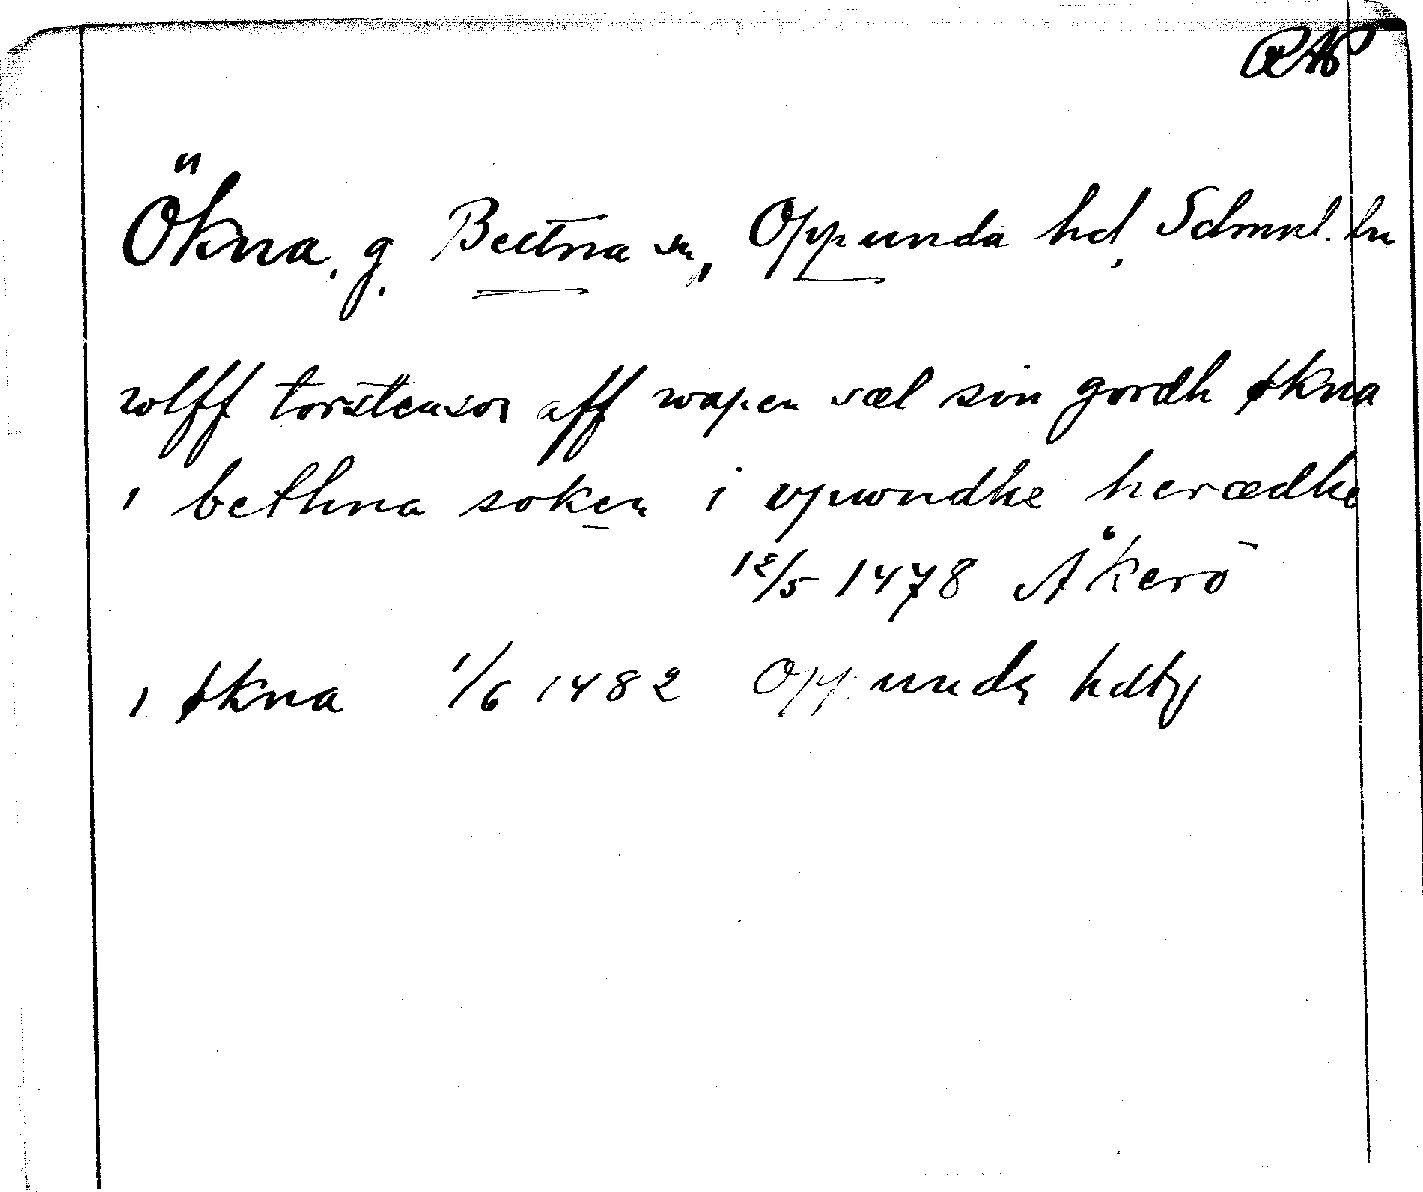 RAP
Ökna, g. Bettna sn, Oppunda hd, Sdmnl. ln
wlff torstenson aff wapen sæl sin gordh økna
i bethna soken i vpwndhe herædhe
12/5 1478 Åkerö
i økna 1/6 1482 Oppunda hdby